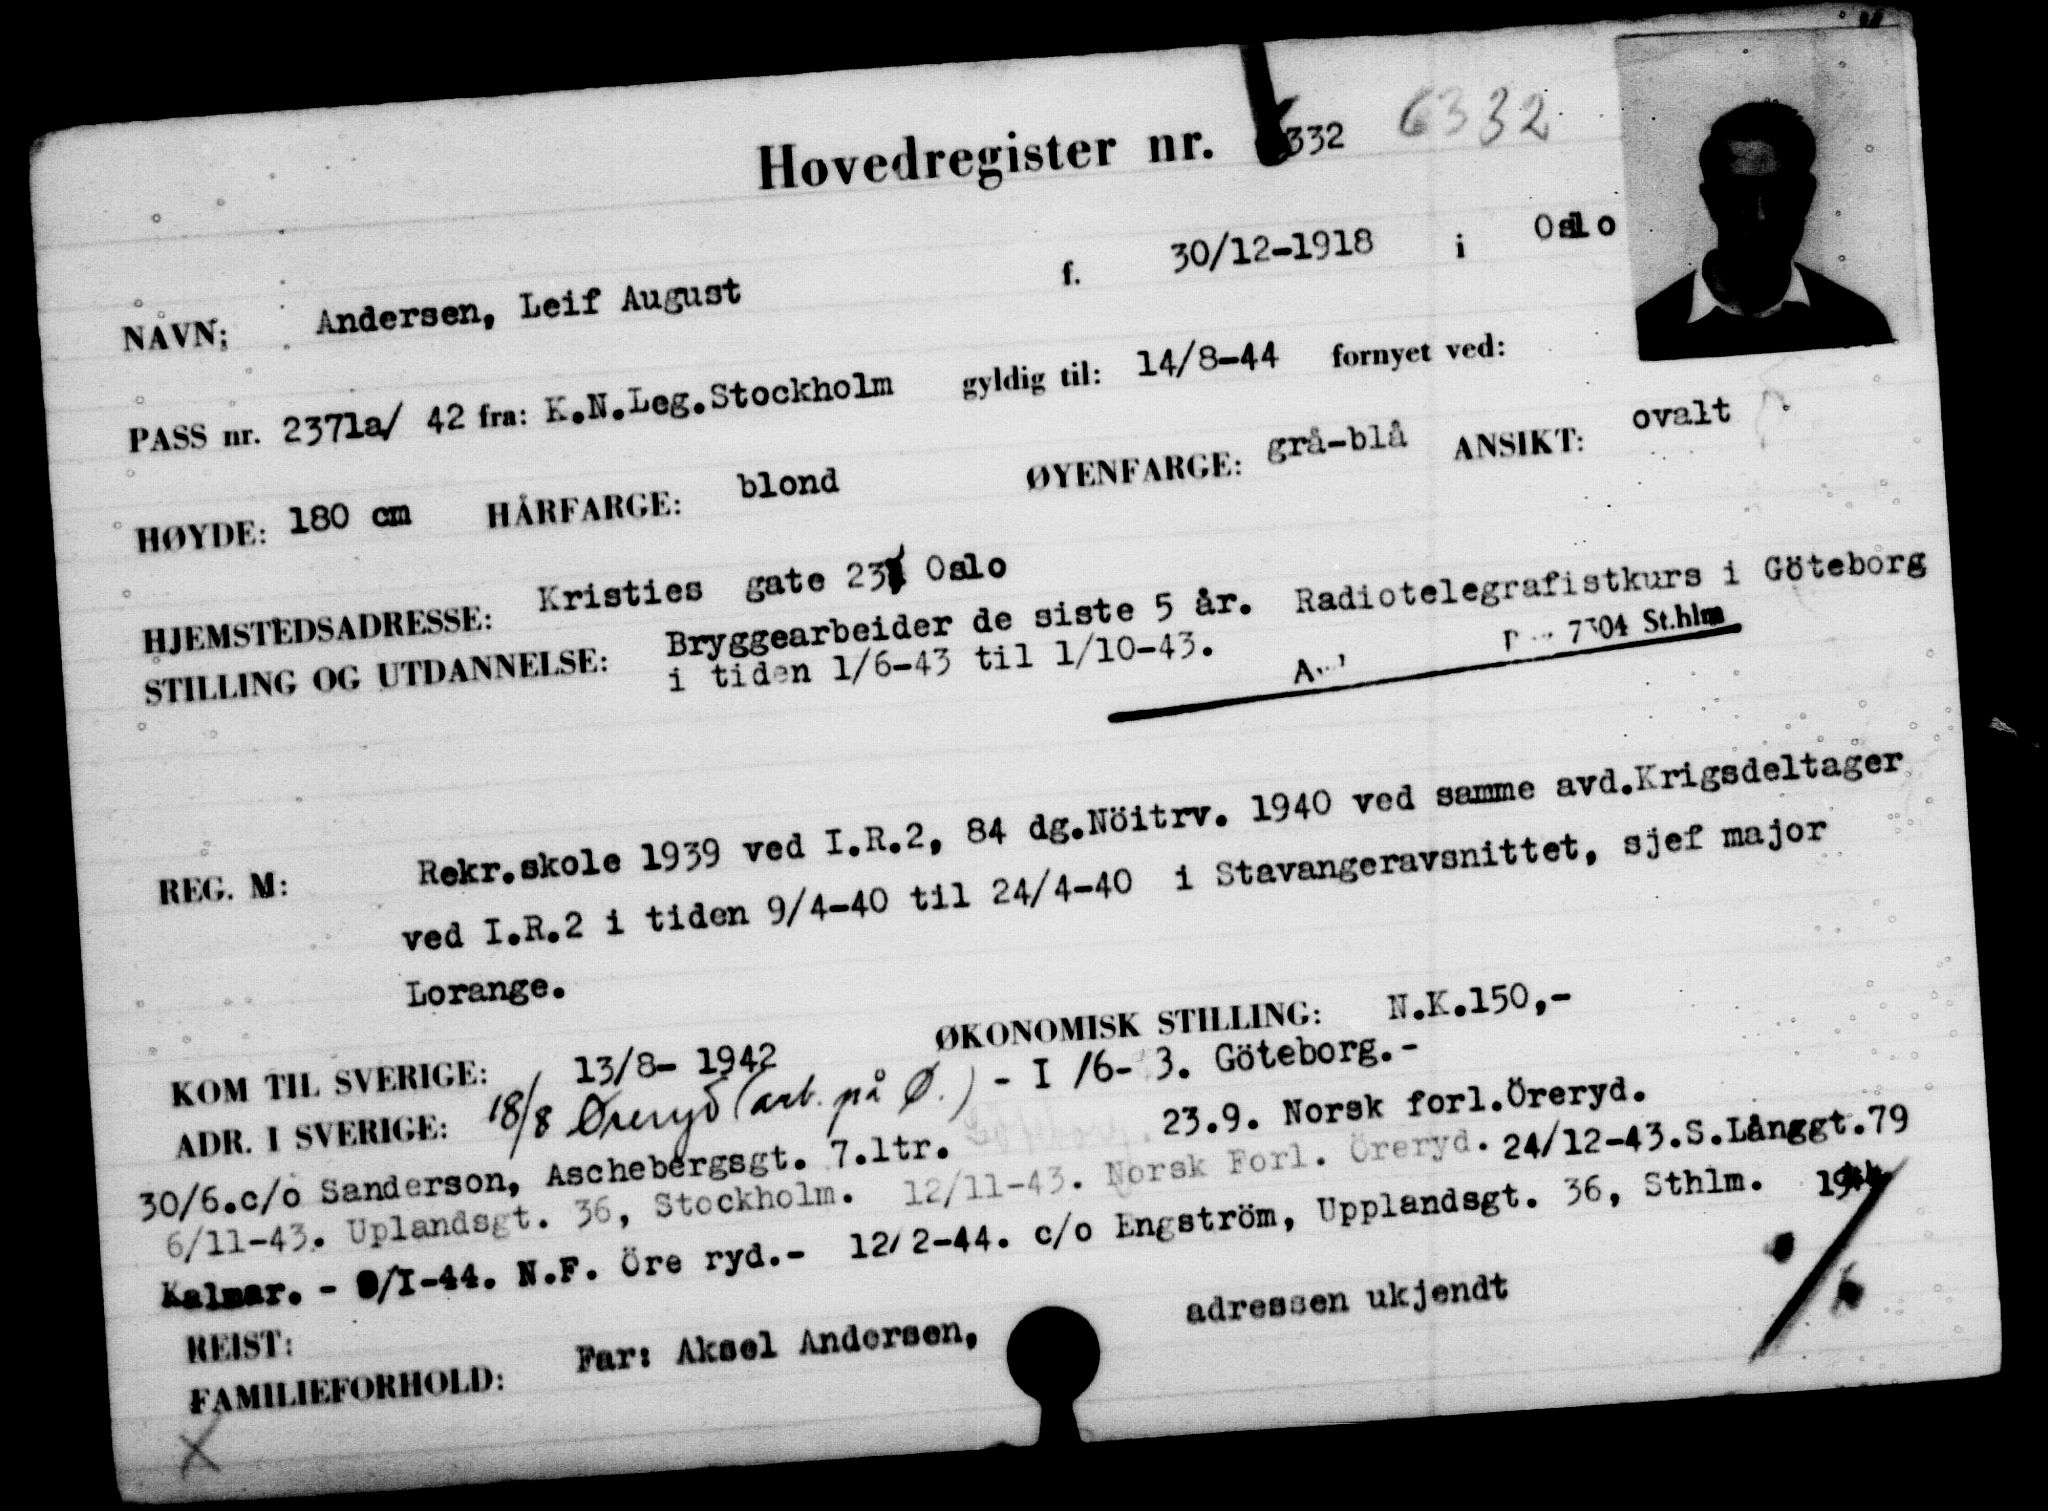 Hovedregister nr. 6332 6332
NAVN: Andersen, Leif August f. 30/12-1918 i Oslo
PASS nr. 2371a/ 42 fra: K.N.Leg.Stockholm gyldig til: 14/8-44 fornyet ved:
HØYDE: 180 cm HÅRFARGE: blond ØYENFARGE: grå-blå ANSIKT: ovalt
HJEMSTEDSADRESSE: Kristies gate 23 Oslo
STILLING OG UTDANNELSE: Bryggearbeider de siste 5 år. Radiotelegrafistkurs i Göteborg
i tiden 1/6-43 til 1/10-43. 7304 St.hlm
REG. M: Rekr.skole 1939 ved I.R.2, 84 dg.Nöitrv. 1940 ved samme avd.Krigsdeltager
ved I.R.2 i tiden 9/4-40 til 24/4-40 i Stavangeravsnittet, sjef major
Lorange.
KOM TIL SVERIGE: 13/8- 1942 ØKONOMISK STILLING: N.K.150,-
ADR. I SVERIGE: 18/8 Øreryd (arb. på Ø.) - I /6- 3. Göteborg.-
30/6.c/o Sanderson, Aschebergsgt. 7.1tr. 23.9. Norsk forl.Öreryd.
6/11-43. Uplandsgt. 36, Stockholm. 12/11-43. Norsk Forl. Öreryd. 24/12-43.S.Långgt.79
Kalmar. - 9/I-44. N.F. Öre ryd.- 12/2-44. c/o Engström, Upplandsgt. 36, Sthlm.
REIST:
FAMILIEFORHOLD: Far: Aksel Andersen, adressen ukjendt
X